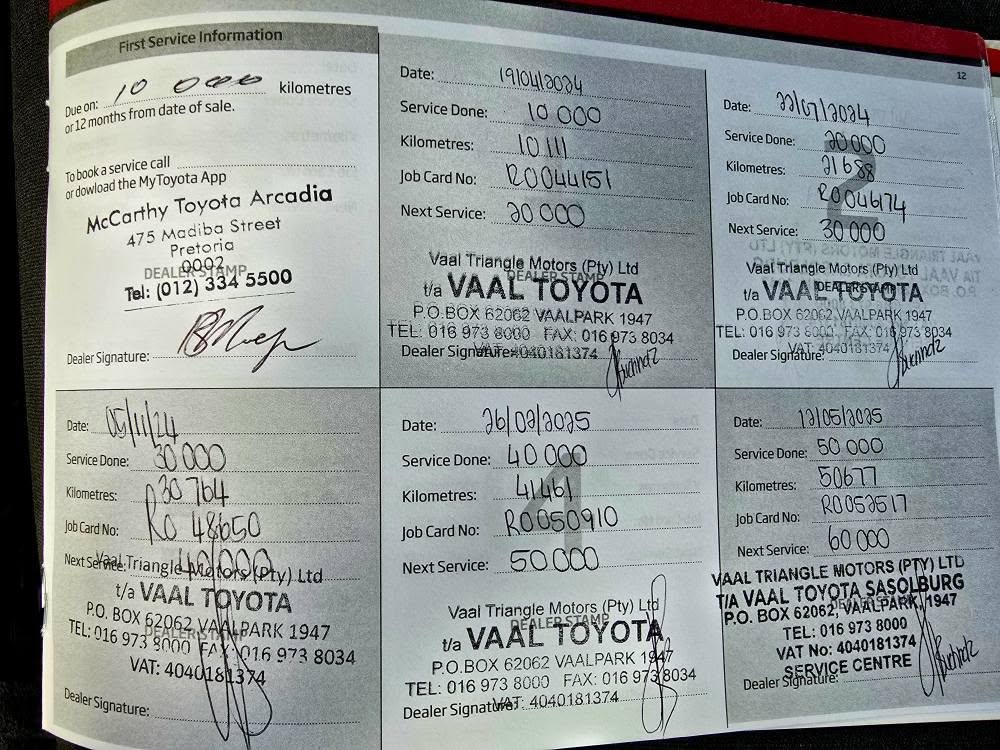 First Service Information
Due on: 10 000 kilometres
or 12 months from date of sale.
To book a service call
or dowload the MyToyota App
McCarthy Toyota Arcadia
475 Madiba Street
Pretoria
0002
DEALER STAMP
Tel: (012) 334 5500
Dealer Signature:
Date: 19/04/2024
Service Done: 10 000
Kilometres: 10 111
Job Card No: R0044151
Next Service: 20 000
Vaal Triangle Motors (Pty) Ltd
DEALER STAMP
t/a VAAL TOYOTA
P.O.BOX 62062 VAALPARK 1947
TEL: 016 973 8000 FAX: 016 973 8034
VAT: 4040181374
Dealer Signature:
12
Date: 22/07/2024
Service Done: 20 000
2
Kilometres: 21 688
Job Card No: R0046174
Next Service: 30 000
Vaal Triangle Motors (Pty) Ltd
DEALER STAMP
t/a VAAL TOYOTA
P.O.BOX 62062 VAALPARK 1947
TEL: 016 973 8000 FAX: 016 973 8034
VAT: 4040181374
Dealer Signature:
Date: 05/11/24
Service Done: 30 000
Kilometres: 30 764
Job Card No: R0 48650
Next Service: 40 000
Vaal Triangle Motors (Pty) Ltd
t/a VAAL TOYOTA
P.O. BOX 62062 VAALPARK 1947
DEALER STAMP
TEL: 016 973 8000 FAX: 016 973 8034
VAT: 4040181374
Dealer Signature:
Date: 26/02/2025
Service Done: 40 000
4
Kilometres: 41461
Job Card No: R0050910
Next Service: 50 000
Vaal Triangle Motors (Pty) Ltd
DEALER STAMP
t/a VAAL TOYOTA
P.O.BOX 62062 VAALPARK 1947
TEL: 016 973 8000 FAX: 016 973 8034
VAT: 4040181374
Dealer Signature:
Date: 12/05/2025
Service Done: 50 000
Kilometres: 50677
Job Card No: R0052517
Next Service: 60 000
VAAL TRIANGLE MOTORS (PTY) LTD
T/A VAAL TOYOTA SASOLBURG
DEALER STAMP
P.O. BOX 62062, VAALPARK, 1947
TEL: 016 973 8000
VAT No: 4040181374
SERVICE CENTRE
Dealer Signature: